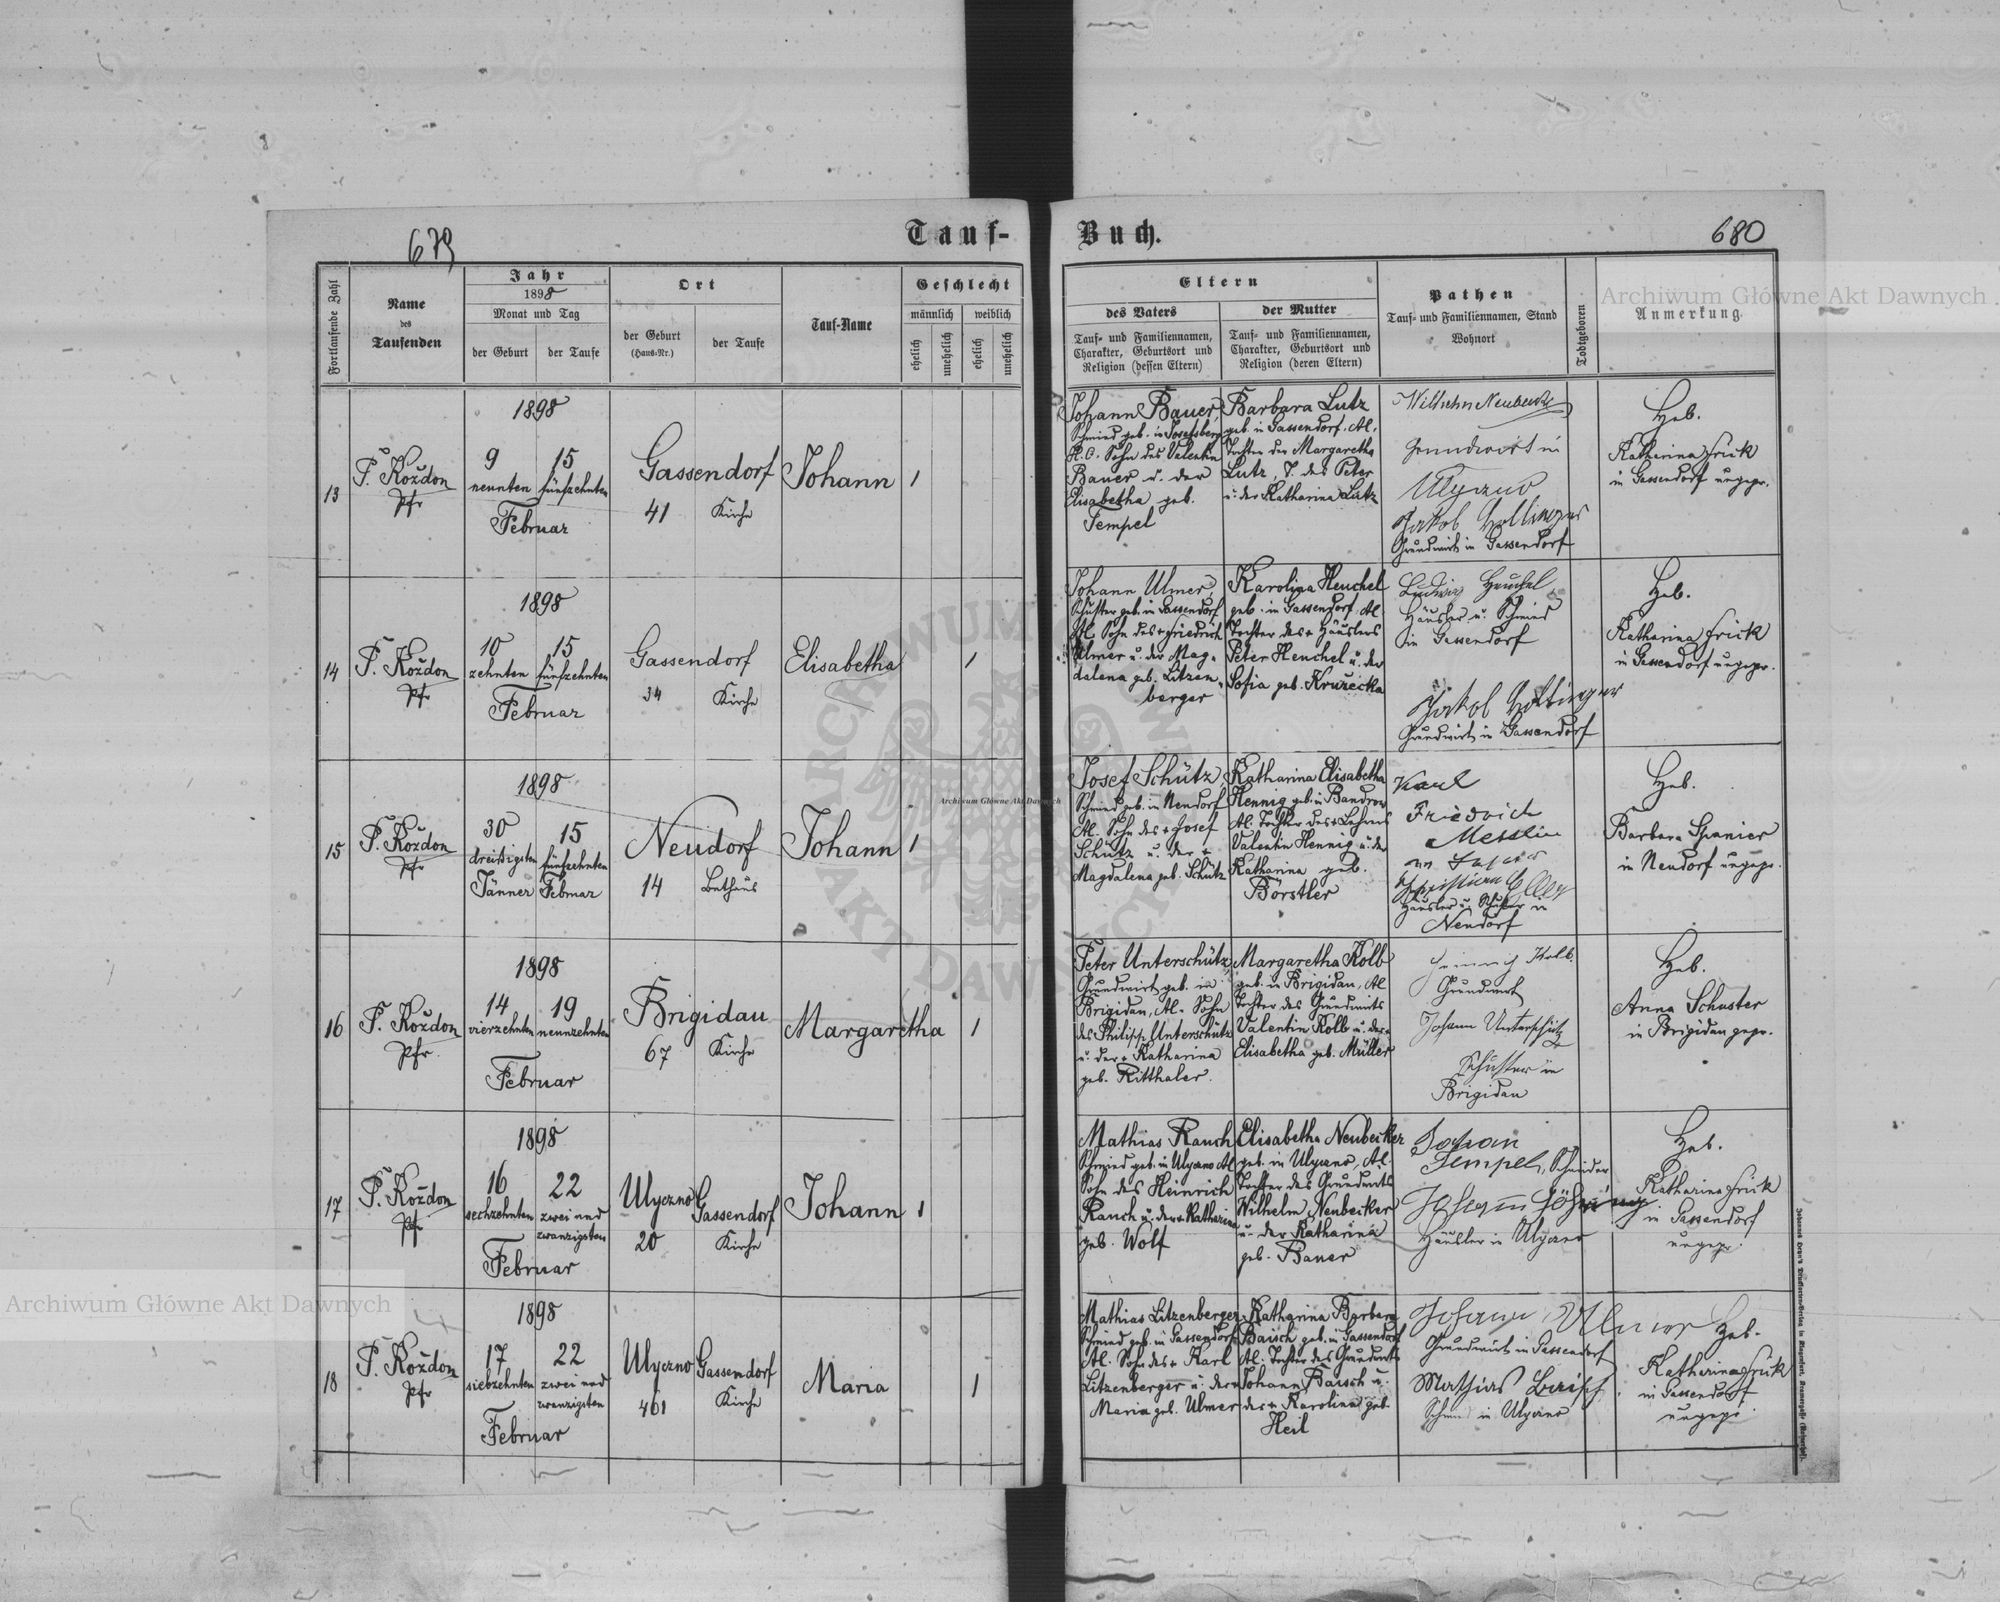 679
Tauf-
Buch.
680
Fortlaufende Zahl
Name
des
Taufenden
Jahr
1898
Monat und Tag
der Geburt
der Taufe
Ort
der Geburt
(Haus-Nr.)
der Taufe
Tauf-Name
Geschlecht
männlich
weiblich
ehelich
unehelich
ehelich
unehelich
Eltern
des Vaters
Tauf- und Familiennamen,
Charakter, Geburtsort und
Religion (dessen Eltern)
der Mutter
Tauf- und Familiennamen,
Charakter, Geburtsort und
Religion (deren Eltern)
Pathen
Tauf- und Familiennamen, Stand
Wohnort
Todtgeboren
Anmerkung
13
P. Koždon
Pfr
1898
9
neunten
15
fünfzehnten
Februar
Gassendorf
41
Kirche
Johann
1
Johann Bauer,
Schmied geb. in Josefsberg
H.C. Sohn des Valentin
Bauer u. der
Elisabetha geb.
Tempel
Barbara Lutz
geb. in Gassendorf, Al,
Tochter der Margaretha
Lutz, T. des Peter
u. der Katharina Lutz
Wilhelm Neubecker
Grundwirt in
Ulyczno
Jakob Hollinger
Grundwirt in Gassendorf
Heb.
Katharina Frick
in Gassendorf ungepr.
14
P. Koždon
Pfr
1898
10
zehnten
15
fünfzehnten
Februar
Gassendorf
34
Kirche
Elisabetha
1
Johann Ulmer,
Schuster geb. in Gassendorf
Al. Sohn des + Friedrich
Ulmer u. der Mag-
dalena geb. Litzen-
berger
Karolina Heuchel
geb. in Gassendorf, Al
Tochter des + Häuslers
Peter Heuchel u. der
Sofia geb. Kružecka
Ludwig Heuchel
Häusler u. Schmied
in Gassendorf
Jakob Hollinger
Grundwirt in Gassendorf
Heb.
Katharina Frick
in Gassendorf ungepr.
15
P. Koždon
Pfr
1898
30
dreißigsten
Jänner
15
fünfzehnten
Februar
Neudorf
14
Bethaus
Johann
1
Josef Schütz
Schmied geb. in Neudorf
Al. Sohn des + Josef
Schütz u. der +
Magdalena geb. Schütz
Katharina Elisabetha
Hennig geb. in Bandrow
Al. Tochter des + Lehrers
Valentin Hennig u. der
Katharina geb.
Börstler
Karl
Friedrich
Messlin
Christian Eller
Häusler u. Schuster in
Neudorf
Heb.
Barbara Spanier
in Neudorf ungepr.
16
P. Koždon
Pfr.
1898
14
vierzehnten
19
neunzehnten
Februar
Brigidau
67
Kirche
Margaretha
1
Peter Unterschütz,
Grundwirt geb. in
Brigidau, Al. Sohn
des Philipp Unterschütz
u. der + Katharina
geb. Ritthaler.
Margaretha Kolb
geb. in Brigidau, Al
Tochter des Grundwirts
Valentin Kolb u. der +
Elisabetha geb. Müller
Heinrich Kolb.
Grundwirt
Johann Unterschütz
Schuster in
Brigidau
Heb.
Anna Schuster
in Brigidau gepr.
17
P. Koždon
Pfr
1898
16
sechzehnten
22
zwei und
zwanzigsten
Februar
Ulyczno
20
Gassendorf
Kirche
Johann
1
Mathias Rauch
Schmied geb. in Ulyczno Al
Sohn des Heinrich
Rauch u. der + Katharina
geb. Wolf
Elisabetha Neubecker
geb. in Ulyczno, Al.
Tochter des Grundwirts
Wilhelm Neubecker
u. der Katharina
geb. Bauer
Johann
Tempel, Schneider
Häusler in Ulyczno
Heb.
Katharina Frick
in Gassendorf
ungepr.
18
P. Koždon
Pfr
1898
17
siebzehnten
22
zwei und
zwanzigsten
Februar
Ulyczno
461
Gassendorf
Kirche
Maria
1
Mathias Litzenberger
Schmied geb. in Gassendorf
Al. Sohn des + Karl
Litzenberger u. der +
Maria geb. Ulmer
Katharina Barbara
Baisch geb. in Gassendorf
Al. Tochter des Grundwirts
Johann Baisch u.
der + Karolina geb
Heil
Johann Ulmer
Grundwirt in Gassendorf
Mathias Baisch
Schmied in Ulyczno
Heb.
Katharina Frick
in Gassendorf
ungepr.
Archiwum Główne Akt Dawnych
Archiwum Główne Akt Dawnych
Archiwum Główne Akt Dawnych
ARCHIWUM GŁÓWNE AKT DAWNYCH